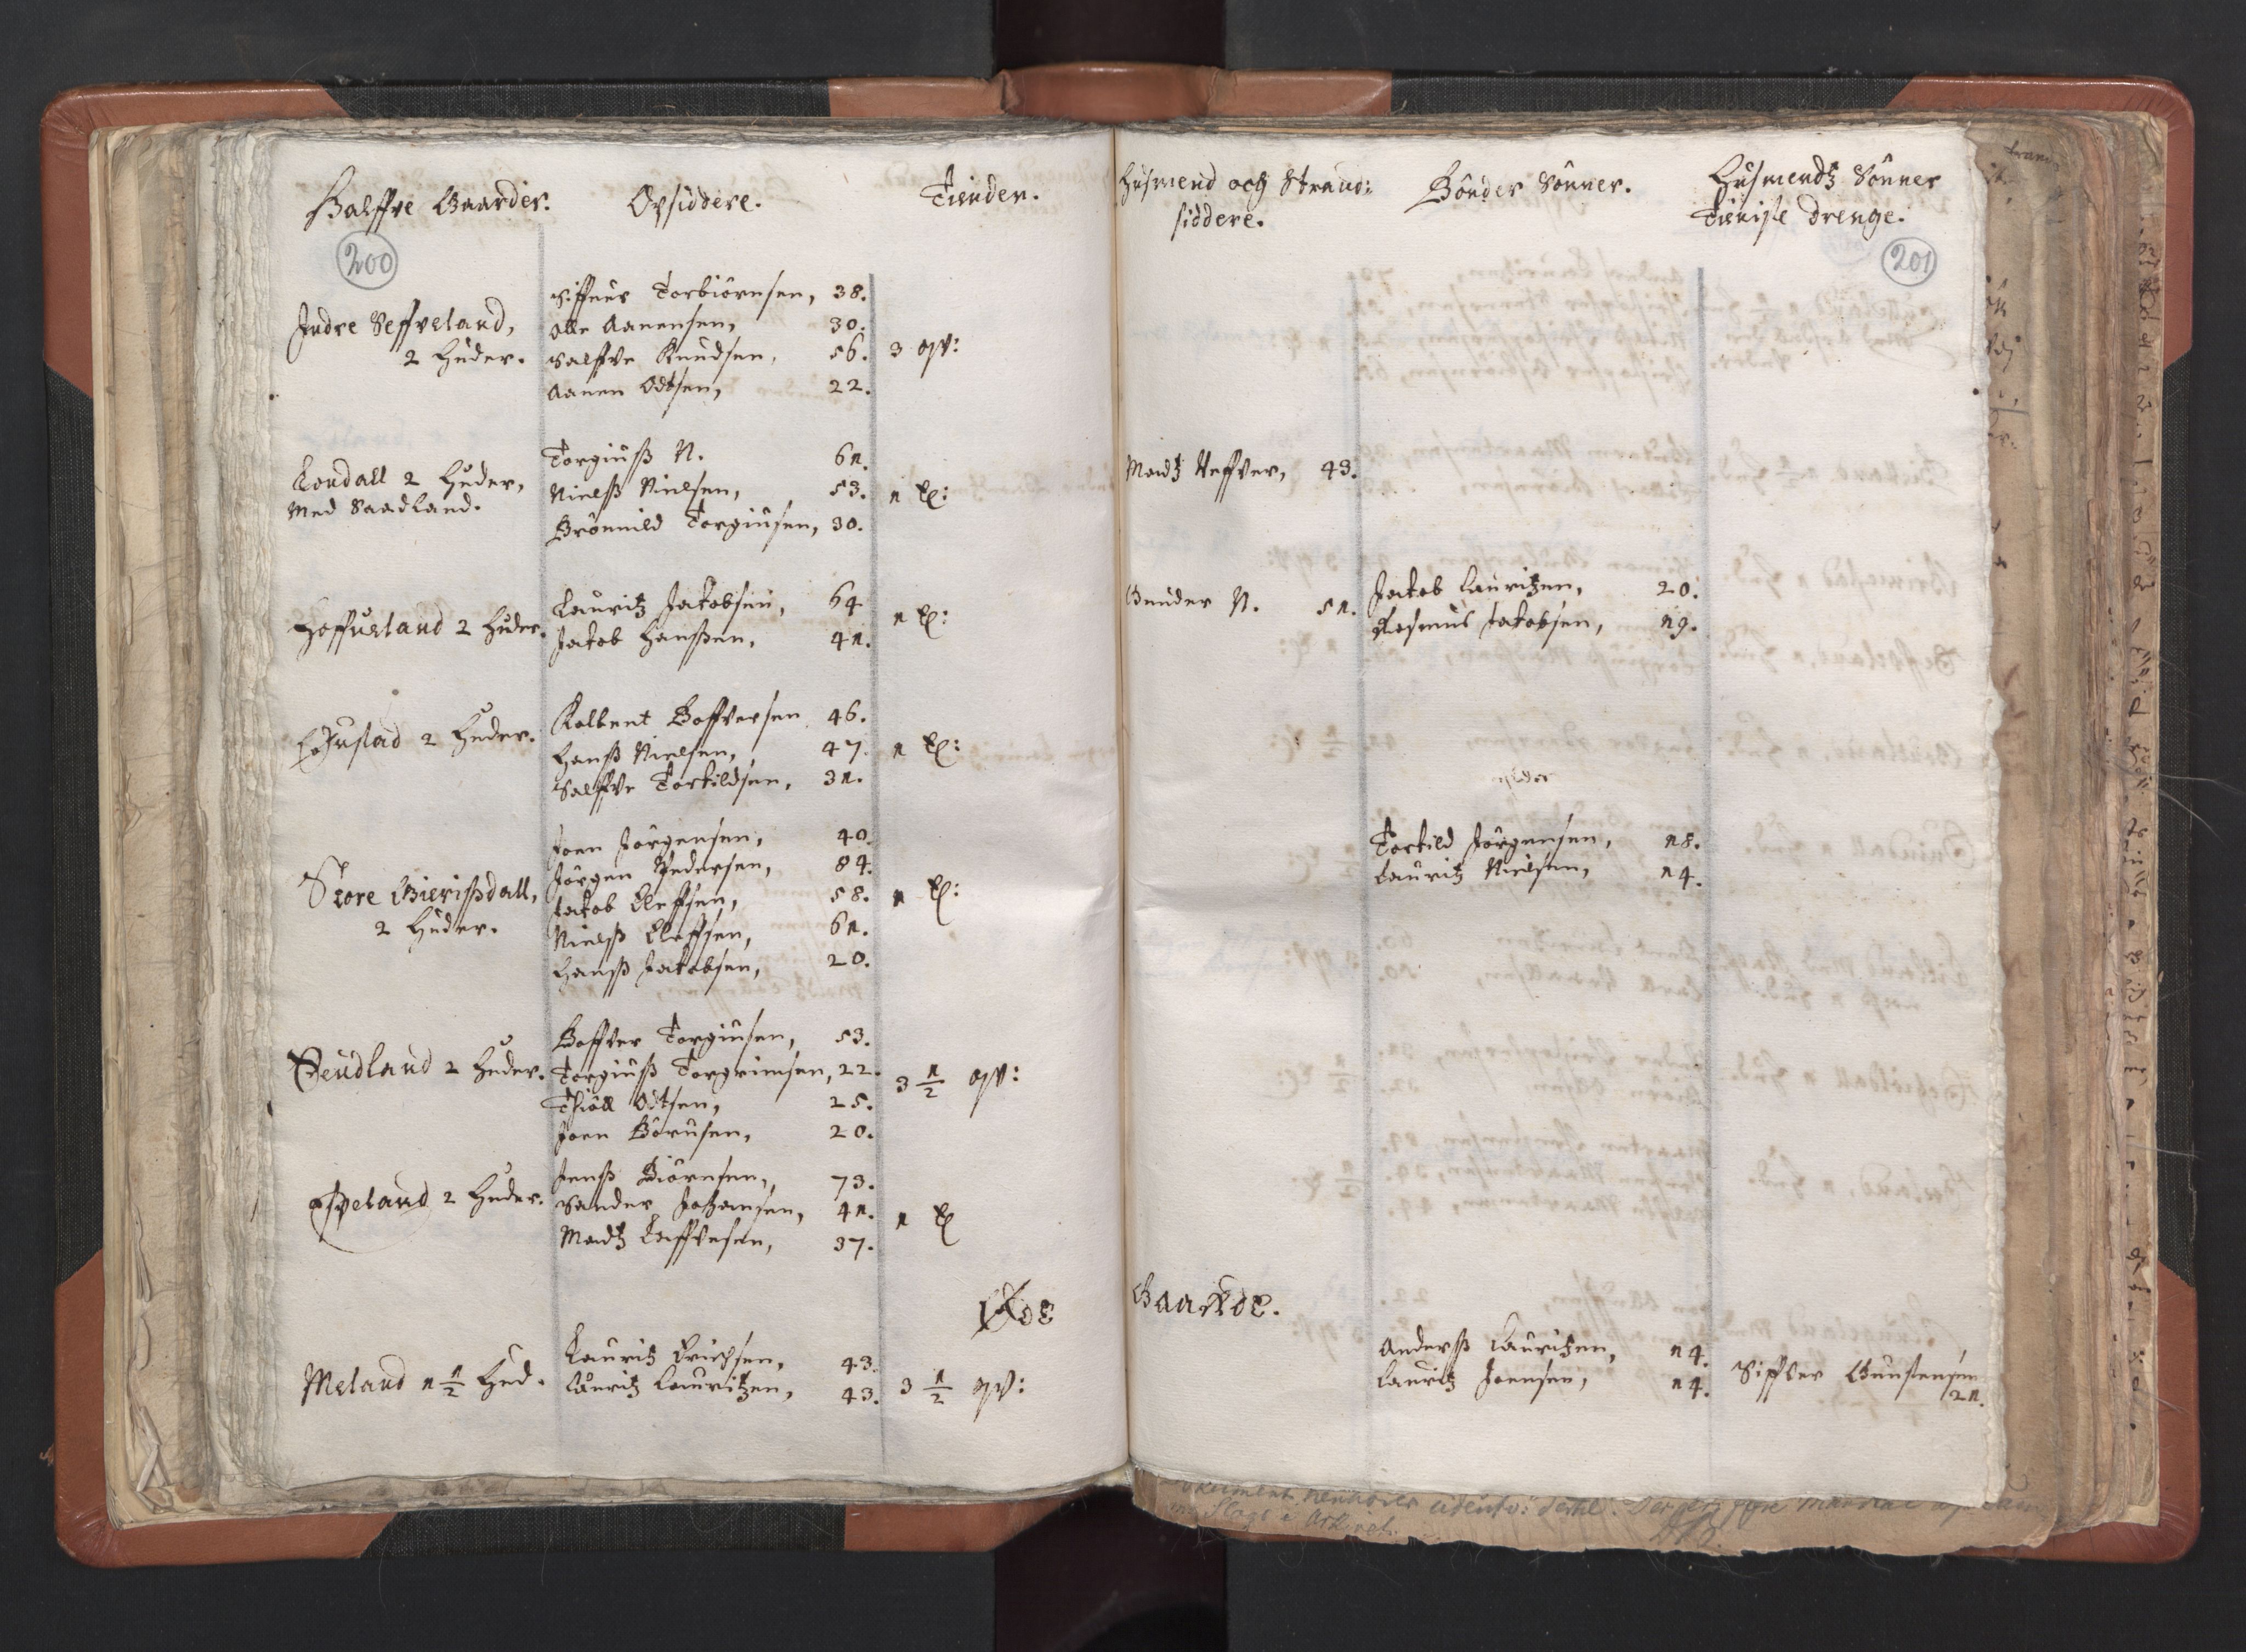 Halffve Gaarder. Opsiddere. Tiender.
200
Indre Seffveland,
2 Huder.
Siffuer Torbiörnsen, 38.
Olle Aanensen, 30.
Salffve Knudsen, 56.
Aanen Odtsen, 22.
3 qv:
Londall 2 Huder,
Med Saadland.
Torgiuß N. 61.
Nielß Nielsen, 53.
Brönnild Torgiusen, 30.
1 t:
Hoffueland 2 Huder.
Lauritz Jakobsen, 64
Jakob Hanßen, 41.
1 t:
2 Huder.
Kolbent Goffversen 46.
Hanß Nielsen, 47.
Salffve Torkildsen, 31.
1 t:
Store Gierißdall,
2 Huder.
Joen Jörgensen, 40.
Jörgen Pedersen, 84.
Jakob Eleffsen, 58.
Nielß Eleffsen, 61.
Hanß Jakobsen, 20.
1 t:
2 Huder.
Goffver Torgiusen, 53.
Torgiuß Torgrimsen, 22.
Thiöll Odtsen, 25.
Joen Börusen, 20.
3 1/2 qv:
2 Huder.
Jenß Biörnsen, 73.
Sander Johansen, 41.
Madtz Leffvesen, 37.
1 t
Øde
Meland 1 1/2 Hud.
Lauritz Erichsen, 43.
Lauritz Lauritzen, 43.
3 1/2 qv:
Husmend och Strand:
siddere.
Bönder Sönner.
Husmendtz Sönner
Tieniste Drenge.
201
Madtz Veffver, 43.
Gunder N. 51.
Jakob Lauritzen, 20.
Rasmus Jakobsen, 19.
Torkild Jörgensen, 18.
Lauritz Nielsen, 14.
Gaarde.
Anderß Lauritzen, 14.
Lauritz Joensen, 14.
Siffver Gunstensen
21.